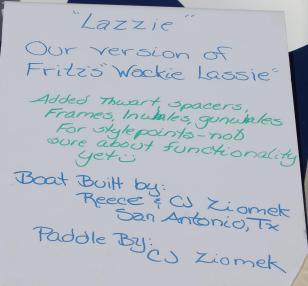 "Lazzie"
Our version of
Fritz's "Wackie Lassie"
Added Thwart, spacers,
Frames, Inwales, gunwales
For style points - not
sure about functionality
yet
Boat Built by:
Reece & CJ Ziomek
San Antonio, Tx
Paddle By:
CJ Ziomek